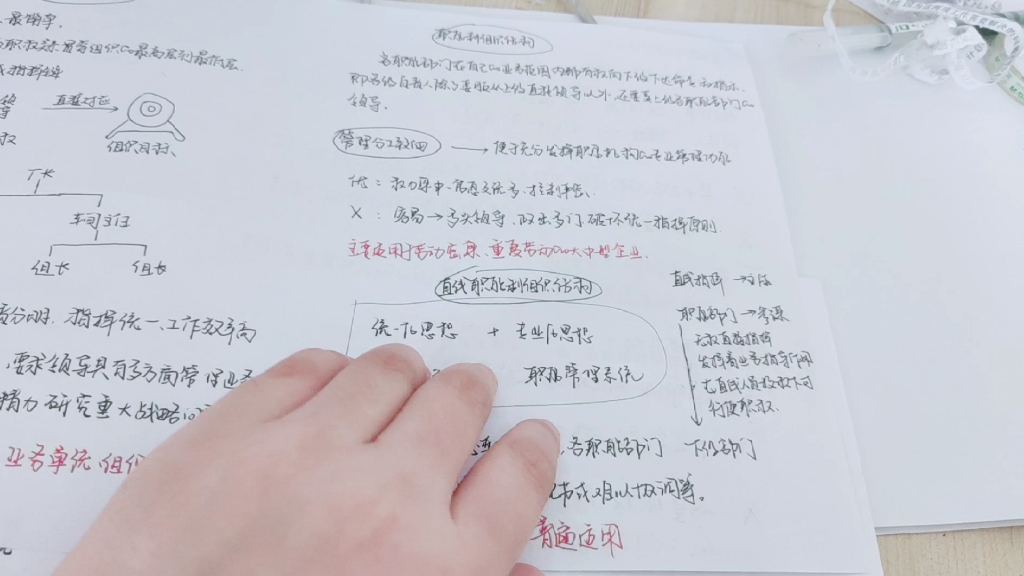 最简单。
直线指挥
直接对应
组织目标
厂长
车间主任
组长 组长
责分明、指挥统一、工作效率高
要求领导具有多方面管理业务
精力研究重大战略问
业务单纯、组织
职能制组织结构
各职能部门在自己的业务范围内都有权向下级下达命令和指示,
即各级负责人除了要服从上级直接领导以外,还要受上级各职能部门的
领导。
管理分工较细 → 便于充分发挥职能机构的专业管理功能
优:权力集中,
X:容易→多头领导,政出多门,破坏统一指挥原则
主要适用于劳动密集、重复劳动的大中型企业.
直线职能制组织结构
统一化思想 + 专业化思想
职能管理系统
直线指挥 → 主体
职能部门 → 参谋
无权直接指挥
发挥着业务指导作用
在直线人员授权下可
行使职权.
各职能部门 下级部门
难以协调等。
普遍适用